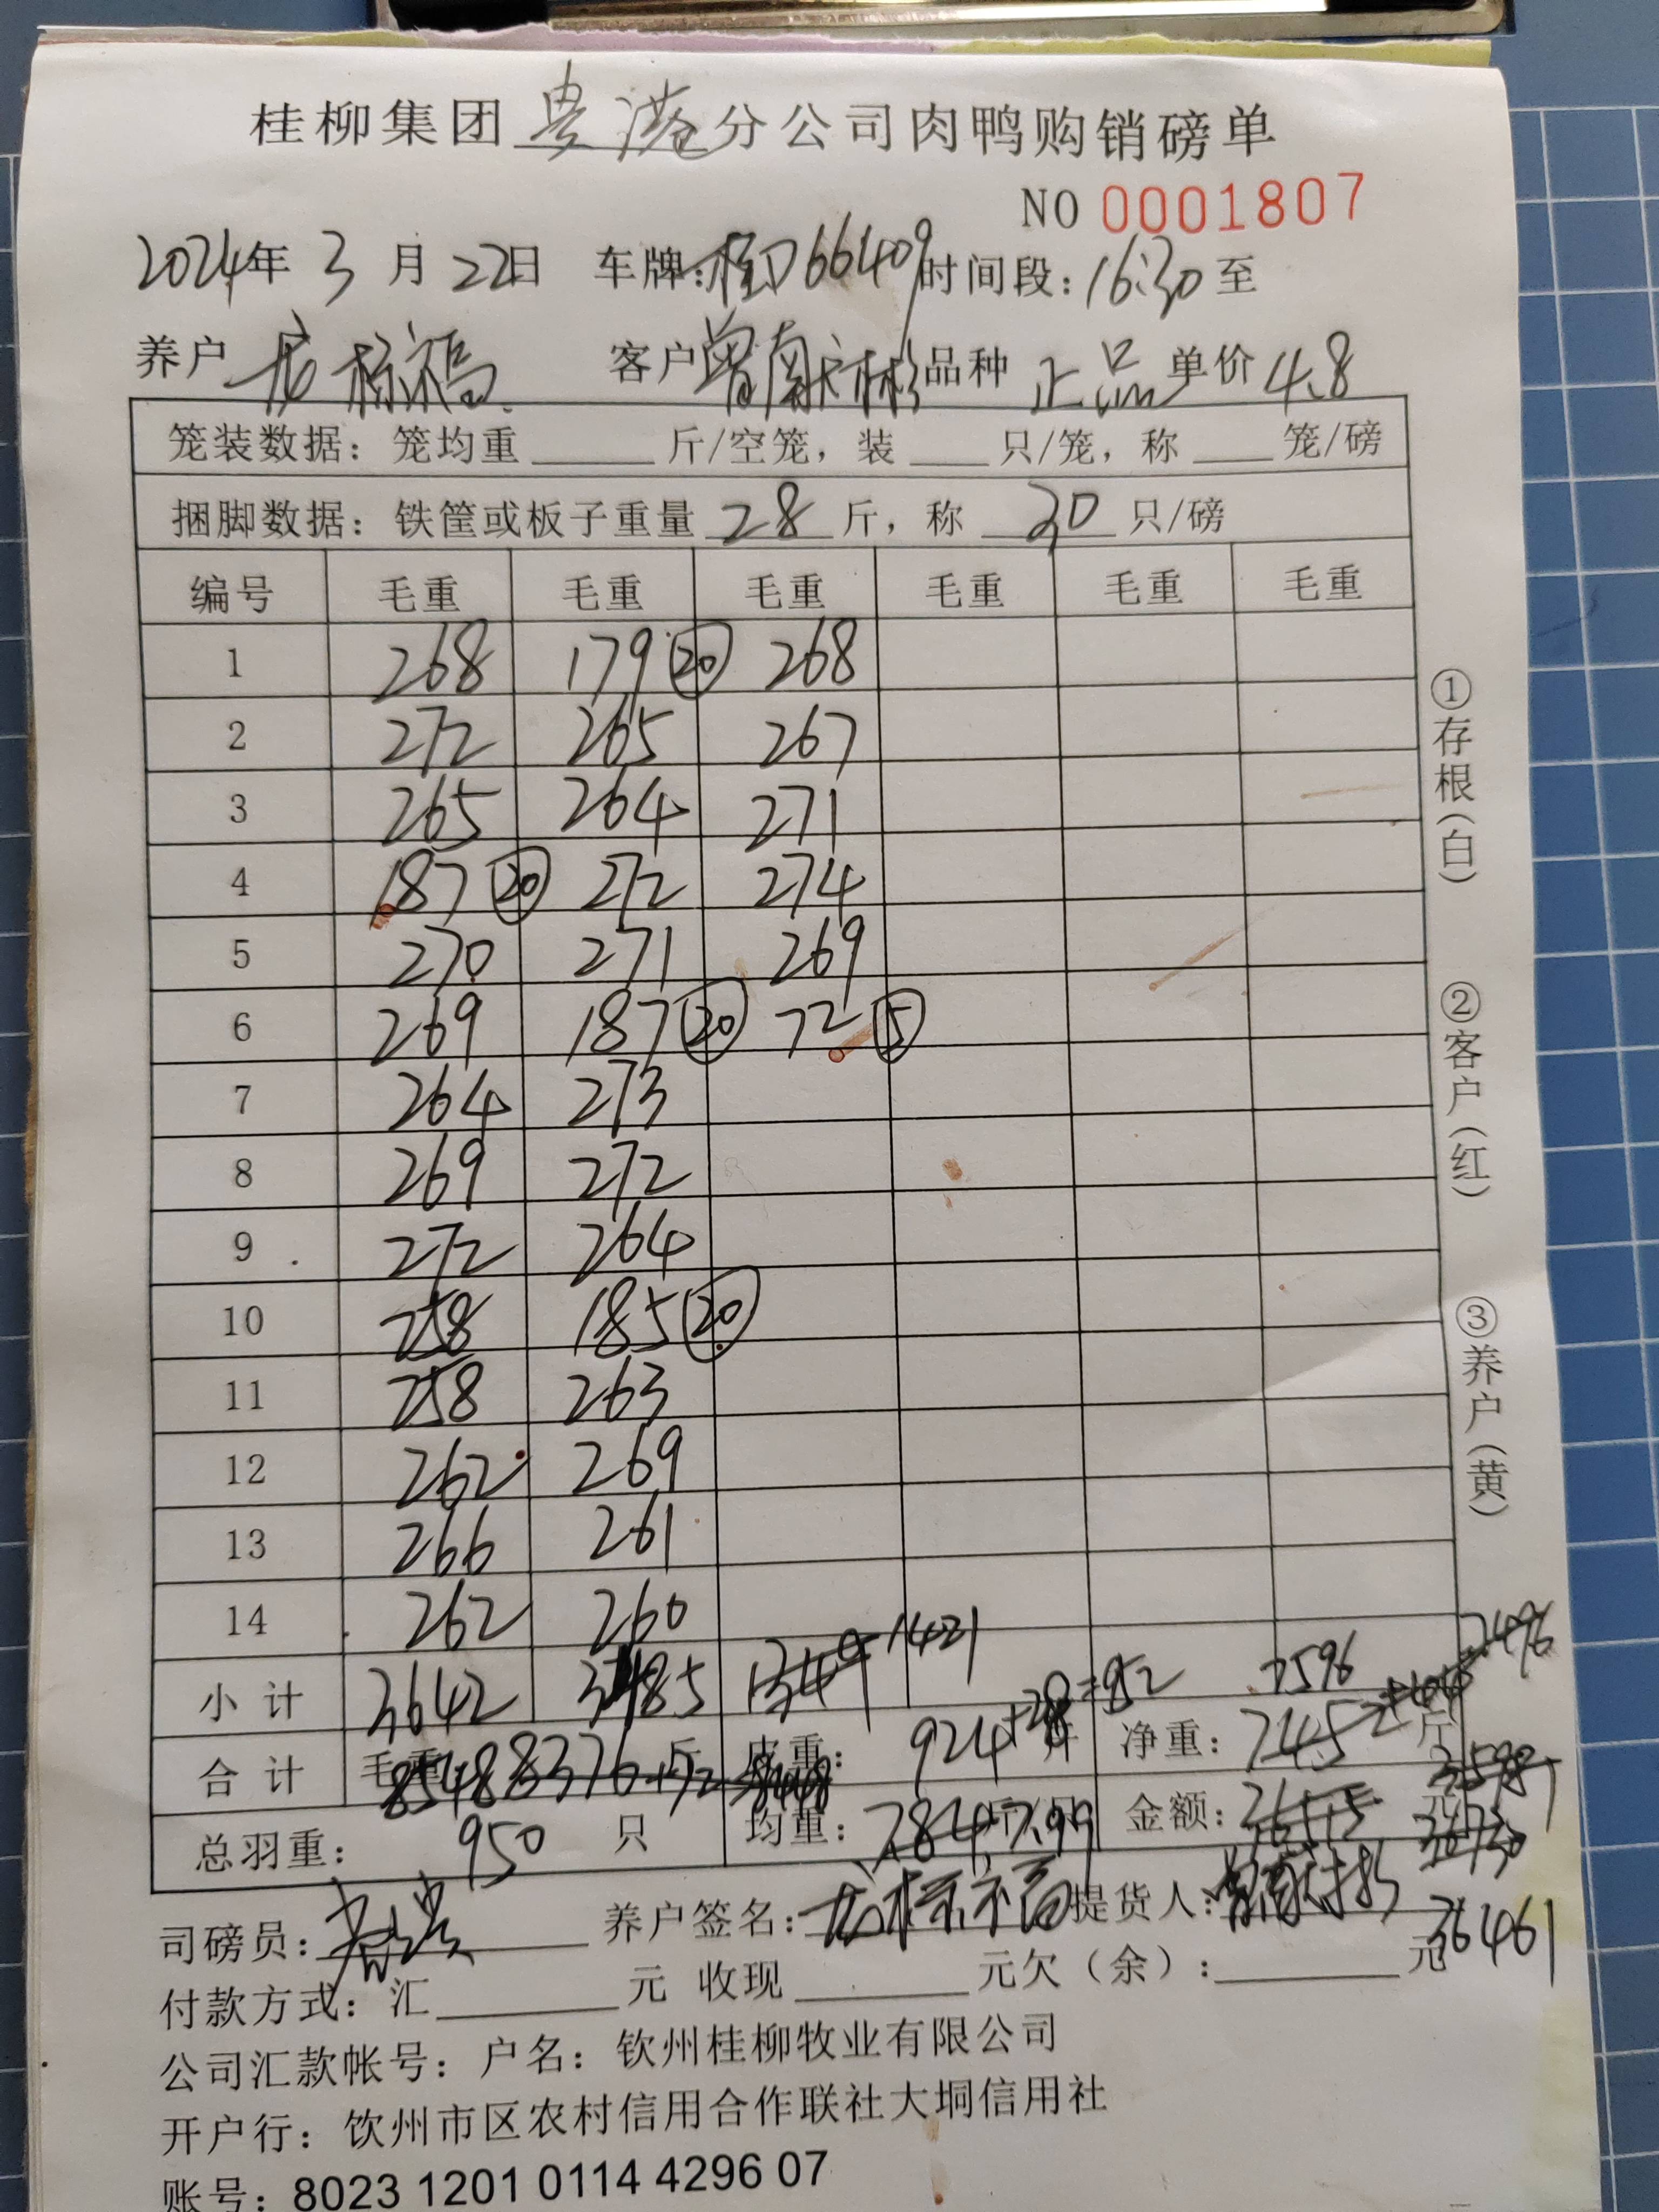 桂柳集团贵港分公司肉鸭购销磅单
NO 0001807
2024年 3 月 22日 车牌:桂D66409 时间段:16:30 至
养户 客户 曾献彬 品种 正品 单价 4.8
笼装数据: 笼均重 斤/空笼, 装 只/笼, 称 笼/磅
捆脚数据: 铁筐或板子重量 28 斤, 称 30 只/磅
编号 毛重 毛重 毛重 毛重 毛重 毛重
1 268 179 ⑳ 268
2 272 265 267
3 265 264 271
4 187 ⑳ 272 274
5 270 271 269
6 269 187 ⑳ 72 ⑤
7 264 273
8 269 272
9 272 264
10 258 185 ⑳
11 258 263
12 262 269
13 266 261
14 262 260
小 计 3642 3485 1349 1421
合 计 毛重: 8548 8376+72 斤 皮重: 924+28=952 斤 净重: 7596 斤
总羽重: 950 只 均重: 7.84 7.99 金额: 元
司磅员: 养户签名: 提货人: 36461
付款方式: 汇 元 收现 元欠(余): 元
公司汇款帐号: 户名: 钦州桂柳牧业有限公司
开户行: 钦州市区农村信用合作联社大垌信用社
账号: 8023 1201 0114 4296 07
①存根(白)
②客户(红)
③养户(黄)